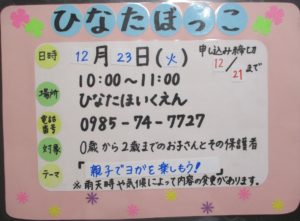 ひなたぼっこ
日時 12月23日(火) 申し込み締め切り
12/21まで
10:00〜11:00
場所 ひなたほいくえん
電話番号 0985-74-7727
対象 0歳から2歳までのお子さんとその保護者
テーマ 「親子でヨガを楽しもう!」
※雨天時や気候によって内容の変更があります。